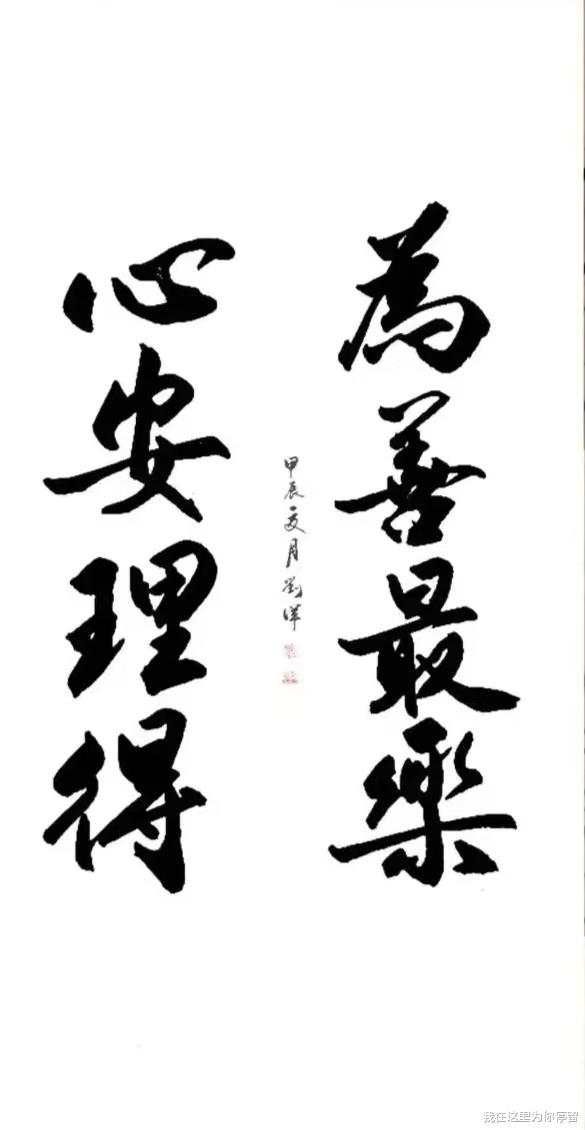 為善最樂
心安理得
甲辰夏月劉洋
我在这里为你停留